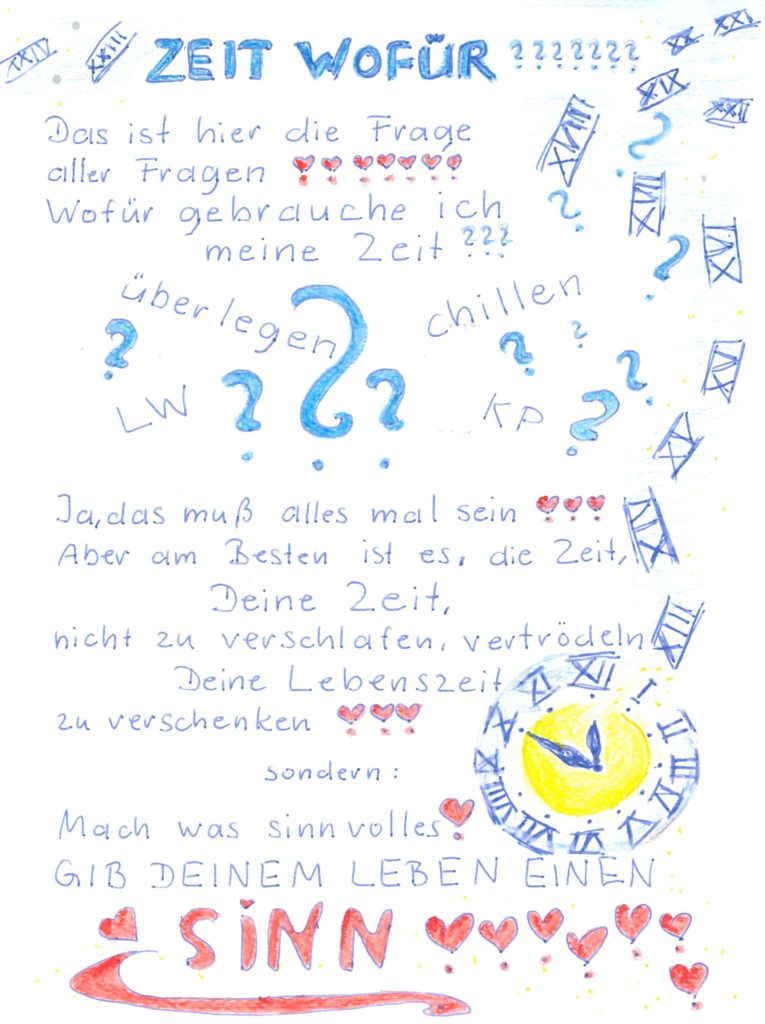 ZEIT WOFÜR ???????
Das ist hier die Frage
aller Fragen !!!!!!!
Wofür gebrauche ich
meine Zeit ???
überlegen
chillen
LW
KP
Ja, das muß alles mal sein !!!
Aber am Besten ist es, die Zeit,
Deine Zeit,
nicht zu verschlafen, vertrödeln
Deine Lebenszeit
zu verschenken !!!
sondern:
Mach was sinnvolles!
GIB DEINEM LEBEN EINEN
SINN !!!!!!!
XXIV
XXIII
XXII
XXI
XX
XIX
XVIII
XVII
XVI
XV
XV
XIV
XIII
XII
I
II
III
IV
V
VI
VII
VIII
IX
X
XI